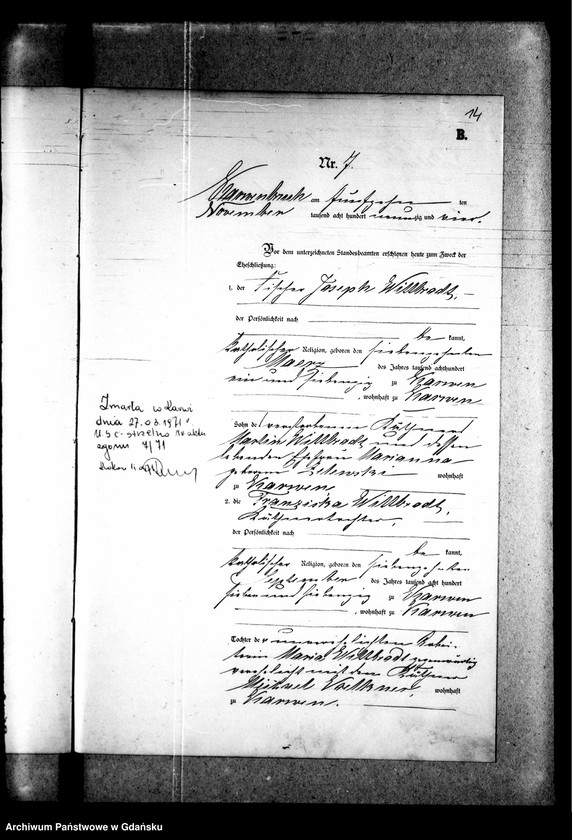 14
B.
Nr. 7.
Karwenbruch am fünfzehn ten
November tausend acht hundert neunzig und vier.
Vor dem unterzeichneten Standesbeamten erschienen heute zum Zweck der
Eheschließung:
1. der Fischer Joseph Willbrodt,
der Persönlichkeit nach
be kannt,
katholischer Religion, geboren den siebenzehnten
Maerz des Jahres tausend achthundert
ein und siebenzig zu Karwen
, wohnhaft zu Karwen
Sohn de s verstorbenen Käthners
Martin Willbrodt und dessen
lebender Ehefrau Marianna
geborene Zelewski wohnhaft
zu Karwen
2. die Franziska Willbrodt,
Käthnertochter,
der Persönlichkeit nach
be kannt,
katholischer Religion, geboren den siebenzehnten
September des Jahres tausend acht hundert
sieben und siebenzig zu Karwen
, wohnhaft zu Karwen
Tochter der unverehelichten Arbei-
terin Maria Willbrodt gegenwärtig
verehelicht mit dem Käthner
Michael Voelkner, wohnhaft
zu Karwen.
Zmarła w Karwi
dnia 27.03.1971 r
U S C - Strzelno Nr aktu
zgonu 7/71
Archiwum Państwowe w Gdańsku